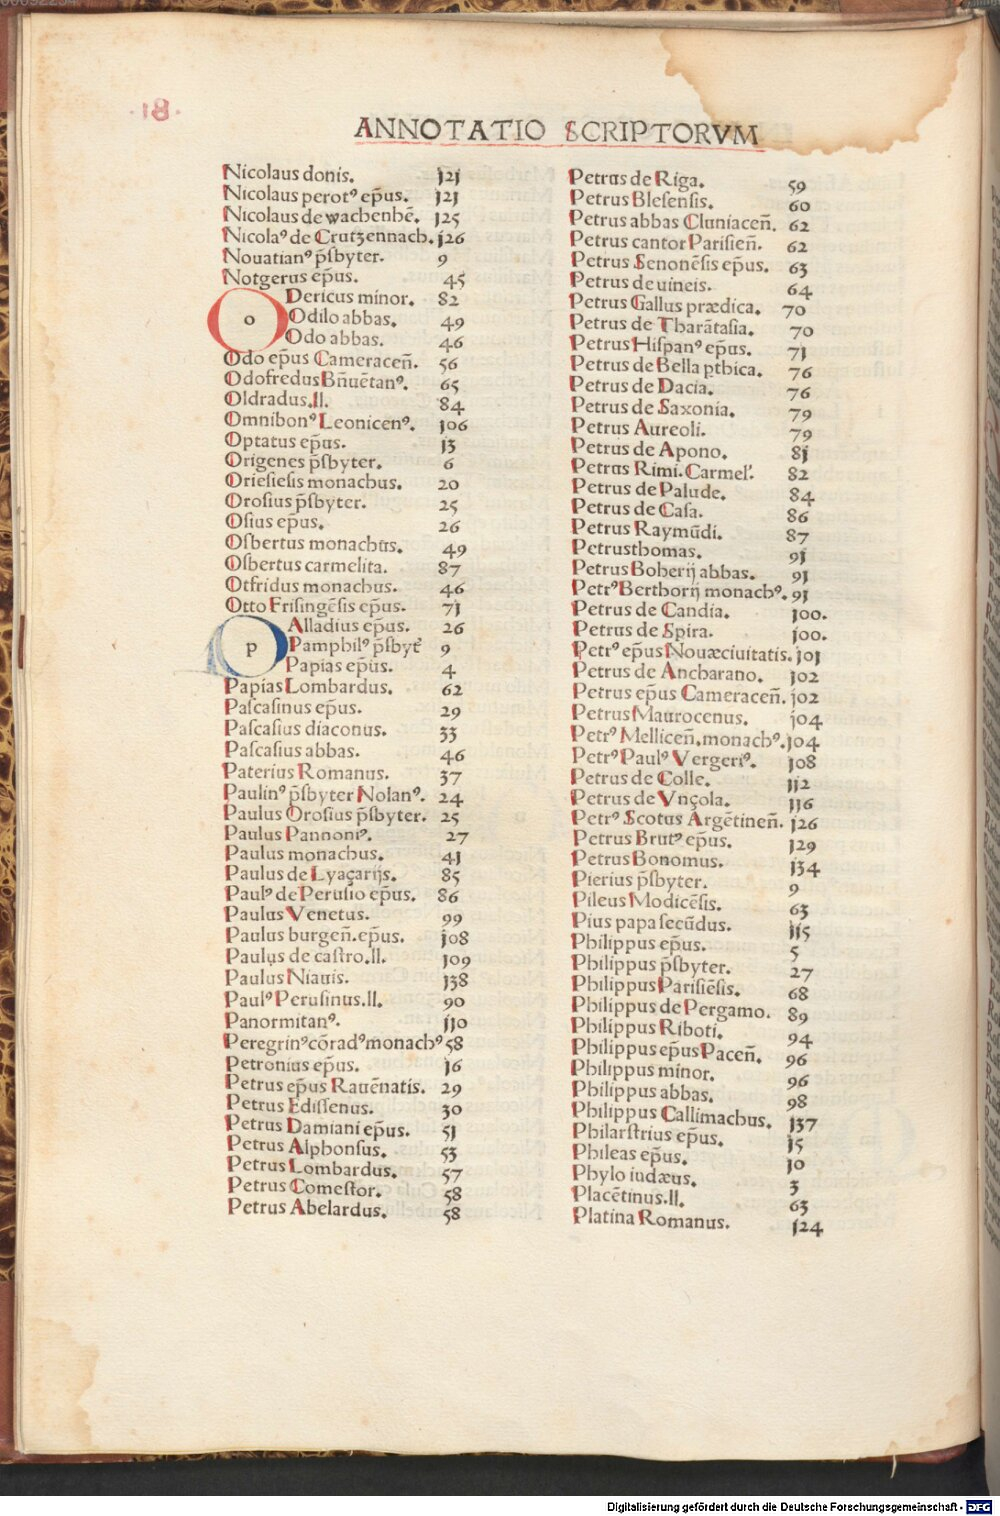 ANNOTATIO SCRIPTORVM
Nicolaus donis. 121
Nicolaus perotꝰ ep̄us. 121
Nicolaus de wachenhē. 125
Nicolaꝰ de Crutzennach. 126
Nouatianꝰ p̄sbyter. 9
Notgerus ep̄us. 45
o
Dericus minor. 82
Odilo abbas. 49
Odo abbas. 46
Odo ep̄us Cameraceñ. 56
Odofredus Bñuētanꝰ. 65
Oldradus.ll. 84
Omnibonꝰ Leonicenꝰ. 106
Optatus ep̄us. 13
Origenes p̄sbyter. 6
Oriesiesis monachus. 20
Orosius p̄sbyter. 25
Osius ep̄us. 26
Osbertus monachus. 49
Osbertus carmelita. 87
Otfridus monachus. 46
Otto Frisingēsis ep̄us. 71
p
Alladius ep̄us. 26
Pamphilꝰ p̄sbyť 9
Papias ep̄us. 4
Papias Lombardus. 62
Pascasinus ep̄us. 29
Pascasius diaconus. 33
Pascasius abbas. 46
Paterius Romanus. 37
Paulinꝰ p̄sbyter Nolanꝰ. 24
Paulus Orosius p̄sbyter. 25
Paulus Pannoniꝰ. 27
Paulus monachus. 41
Paulus de Lyaçarijs. 85
Paulꝰ de Perusio ep̄us. 86
Paulus Venetus. 99
Paulus burgeñ.ep̄us. 108
Paulus de castro.ll. 109
Paulus Niauis. 138
Paulꝰ Perusinus.ll. 90
Panormitanꝰ. 110
Peregrinꝰ cōradꝰ monachꝰ 58
Petronius ep̄us. 16
Petrus ep̄us Rauēnatis. 29
Petrus Edissenus. 30
Petrus Damiani ep̄us. 51
Petrus Alphonsus. 53
Petrus Lombardus. 57
Petrus Comestor. 58
Petrus Abelardus. 58
Petrus de Riga. 59
Petrus Blesensis. 60
Petrus abbas Cluniaceñ. 62
Petrus cantor Parisieñ. 62
Petrus Senonēsis ep̄us. 63
Petrus de uineis. 64
Petrus Gallus prædica. 70
Petrus de Tharātasia. 70
Petrus Hispanꝰ ep̄us. 71
Petrus de Bella pthica. 76
Petrus de Dacia. 76
Petrus de Saxonia. 79
Petrus Aureoli. 79
Petrus de Apono. 81
Petrus Rimi. Carmel'. 82
Petrus de Palude. 84
Petrus de Casa. 86
Petrus Raymūdi. 87
Petrusthomas. 91
Petrus Boherij abbas. 91
Petrꝰ Berthorij monachꝰ. 91
Petrus de Candia. 100.
Petrus de Spira. 100.
Petrꝰ ep̄us Nouæciuitatis. 101
Petrus de Ancharano. 102
Petrus ep̄us Cameraceñ. 102
Petrus Maurocenus. 104
Petrꝰ Melliceñ.monachꝰ. 104
Petrꝰ Paulꝰ Vergeriꝰ. 108
Petrus de Colle. 112
Petrus de Vnçola. 116
Petrꝰ Scotus Argētineñ. 126
Petrus Brutꝰ ep̄us. 129
Petrus Bonomus. 134
Pierius p̄sbyter. 9
Pileus Modicēsis. 63
Pius papa secūdus. 115
Philippus ep̄us. 5
Philippus p̄sbyter. 27
Philippus Parisiēsis. 68
Philippus de Pergamo. 89
Philippus Riboti. 94
Philippus ep̄us Paceñ. 96
Philippus minor. 96
Philippus abbas. 98
Philippus Callimachus. 137
Philarstrius ep̄us. 15
Phileas ep̄us. 10
Phylo iudæus. 3
Placētinus.ll. 63
Platina Romanus. 124
Digitalisierung gefördert durch die Deutsche Forschungsgemeinschaft - DFG